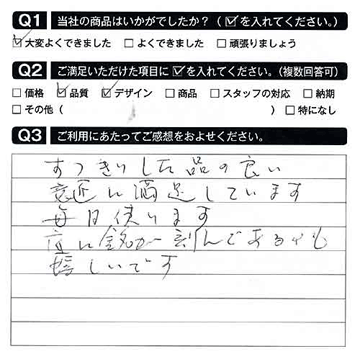 Q1 当社の商品はいかがでしたか?(☑を入れてください。)
☑大変よくできました □よくできました □頑張りましょう
Q2 ご満足いただけた項目に☑を入れてください。(複数回答可)
□価格 ☑品質 ☑デザイン □商品 □スタッフの対応 □納期
□その他( ) □特になし
Q3 ご利用にあたってご感想をおよせください。
すっきりした品の良い
意匠に満足しています
毎日使います
底に銘が刻んであるのも
嬉しいです